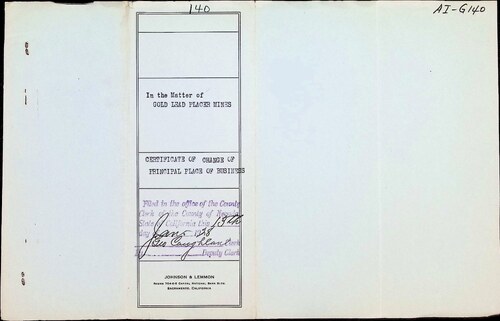 140
AI-G140
In the Matter of
GOLD LEAD PLACER MINES
CERTIFICATE OF CHANGE OF
PRINCIPAL PLACE OF BUSINESS
Filed in the office of the County
Clerk of the County of
State of California this 15th
day Jan 1928
Geo Coughlan Clerk
Deputy Clerk
JOHNSON & LEMMON
SACRAMENTO, CALIFORNIA